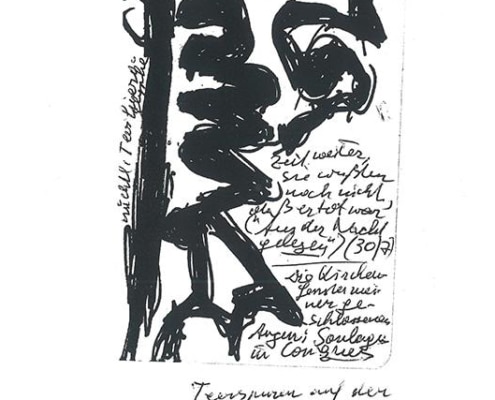 Zeit weiter,
sie wußten
noch nicht
daß er tot war"
("Aus der Nacht
gelesen") (30/7)
Die Kirchen-
fenster mei-
ner ge-
schlossenen
Augen: Soulages
in Conques
Teerspuren auf der